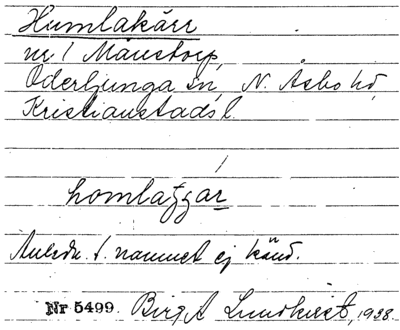 Humlakärr
nr 1 Månstorp,
Oderljunga sn, N. Åsbo hd,
Kristianstads l.
Anledn. t. namnet ej känd.
Nr 5499. Birgit Lundkvist, 1938.